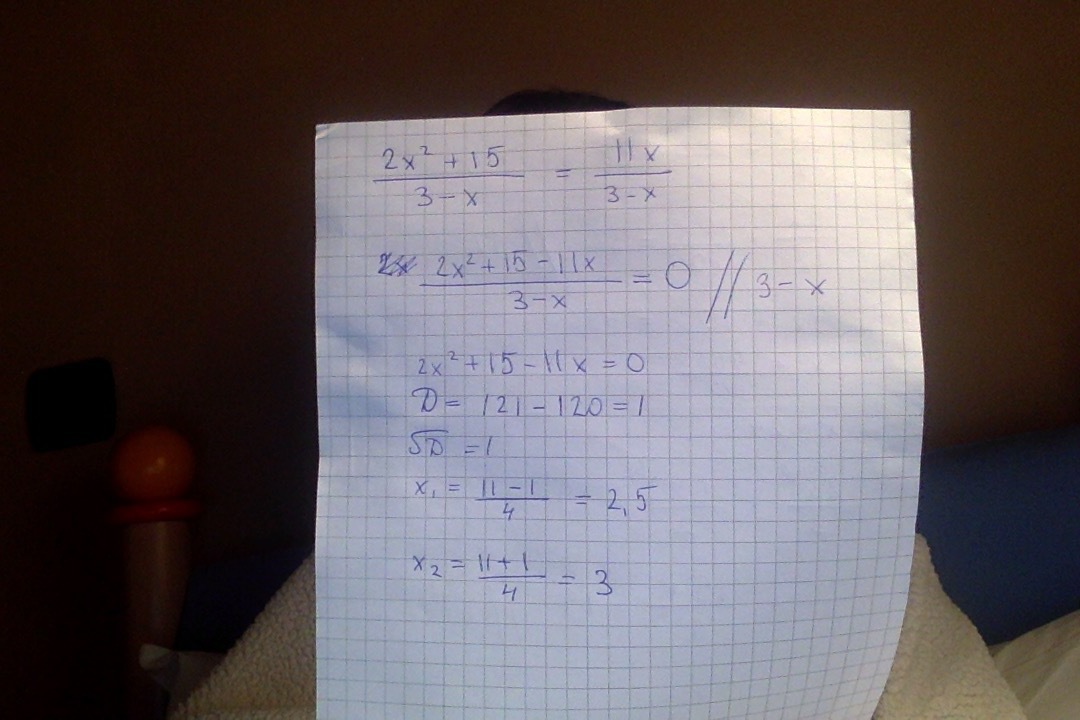 2x² + 15 / 3 - x = 11x / 3 - x
2x² + 15 - 11x / 3 - x = 0 // 3 - x
2x² + 15 - 11x = 0
D = 121 - 120 = 1
√D = 1
x₁ = 11 - 1 / 4 = 2,5
x₂ = 11 + 1 / 4 = 3